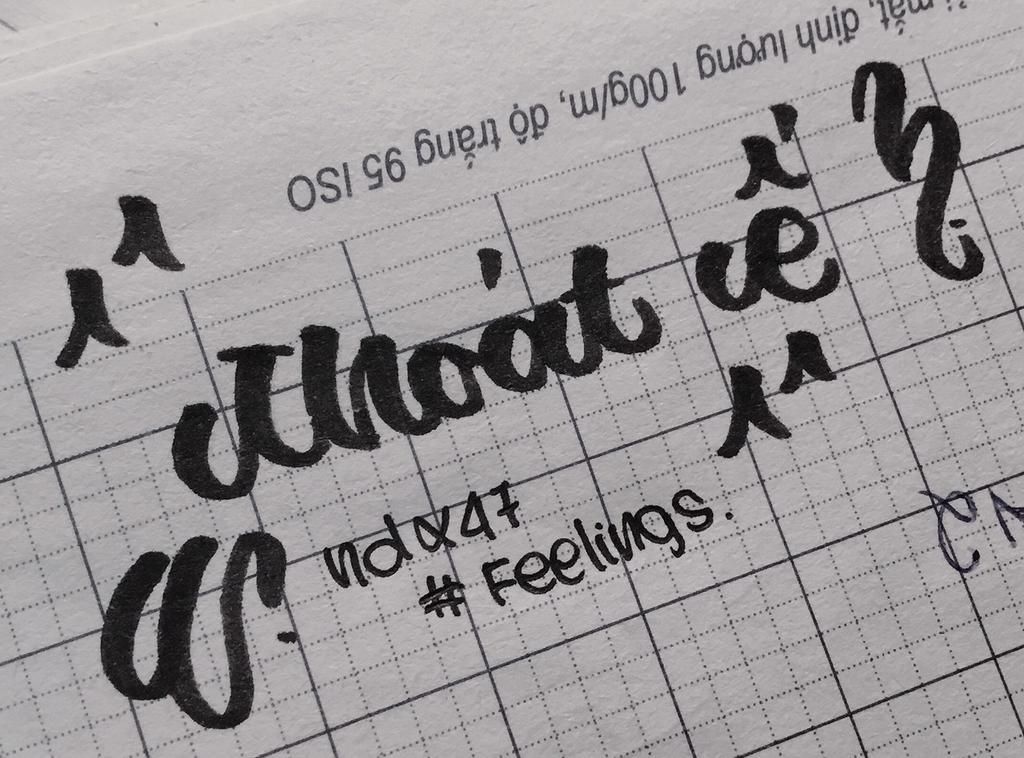 mắt, định lượng 100g/m, độ trắng 95 ISO
thoát ế
ndx47
# Feelings.